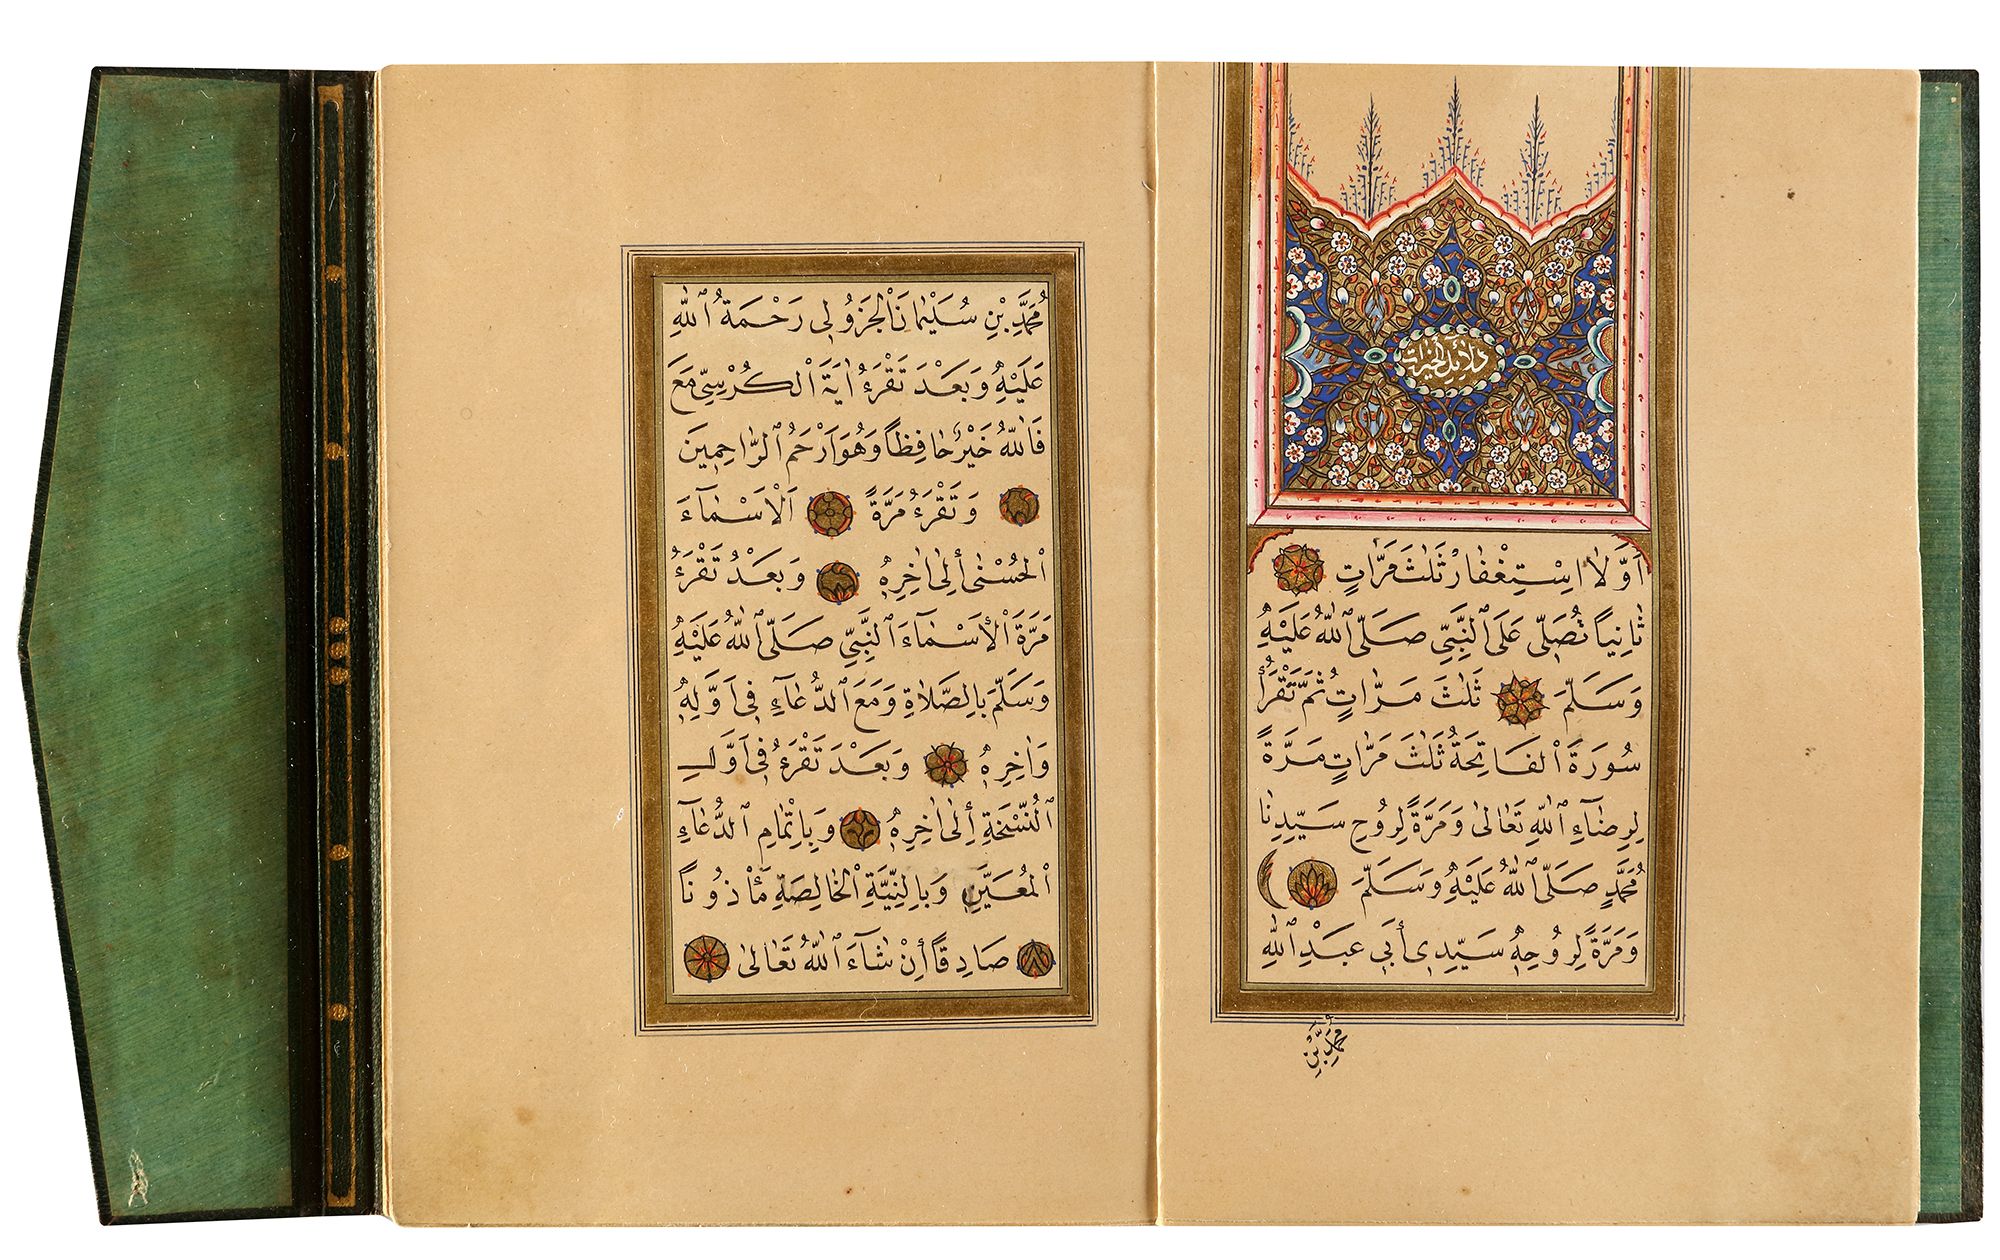 دلائل الخيرات
اَوَّلاً اِسْتِغْفَارْ ثَلٰثَ مَرَّاتٍ
ثَانِياً تُصَلِّى عَلَى النَّبِيِّ صَلَّى اللهُ عَلَيْهِ
وَسَلَّمَ ثَلٰثَ مَرَّاتٍ ثُمَّ تَقْرَأُ
سُورَةَ الْفَاتِحَةُ ثَلٰثَ مَرَّاتٍ مَرَّةً
لِرِضَاءِ اللهِ تَعَالٰى وَمَرَّةً لِرُوحِ سَيِّدِنَا
مُحَمَّدٍ صَلَّى اللهُ عَلَيْهِ وَسَلَّمَ
وَمَرَّةً لِرُوحِهِ سَيِّدِى أَبِى عَبْدِ اللهِ
مُحَمَّدِ بْنِ
مُحَمَّدِ بْنِ سُلَيْمَانَ الْجَزُولِى رَحْمَةُ اللهِ
عَلَيْهِ وَبَعْدَ تَقْرَءُ اٰيَةَ الْكُرْسِيِّ مَعَ
فَاللهُ خَيْرٌ حَافِظاً وَهُوَ اَرْحَمُ الرَّاحِمِينَ
وَتَقْرَءُ مَرَّةً اَلْاَسْمَآءَ
الْحُسْنٰى أِلٰى اٰخِرِهِ وَبَعْدُ تَقْرَءُ
مَرَّةَ الْأَسْمَآءَ النَّبِيِّ صَلَّى اللهُ عَلَيْهِ
وَسَلَّمَ بِالصَّلَاةِ وَمَعَ الدُّعَآءِ فِى اَوَّلِهِ
وَاٰخِرِهِ وَبَعْدَ تَقْرَءُ فِى اَوَّلِ
النُّسْخَةِ إِلٰى اٰخِرِهِ وَبِاِتْمَامِ الدُّعَآءِ
الْمُعَيَّنِ وَبِالنِّيَّةِ الْخَالِصَةِ مَأْذُونًا
صَادِقًا أِنْ شَآءَ اللهُ تَعَالٰى